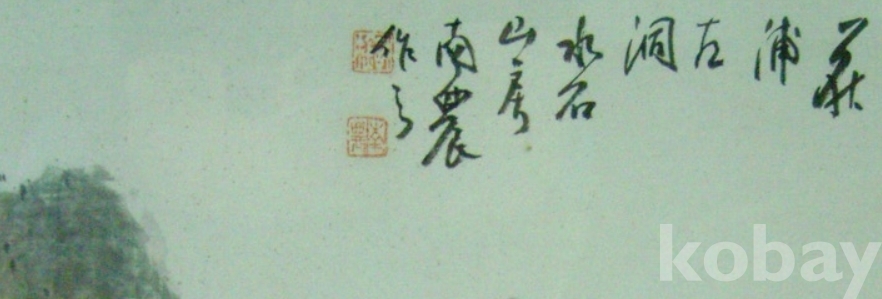 浦
古
洞
水石
山房
南農
作之
kobay